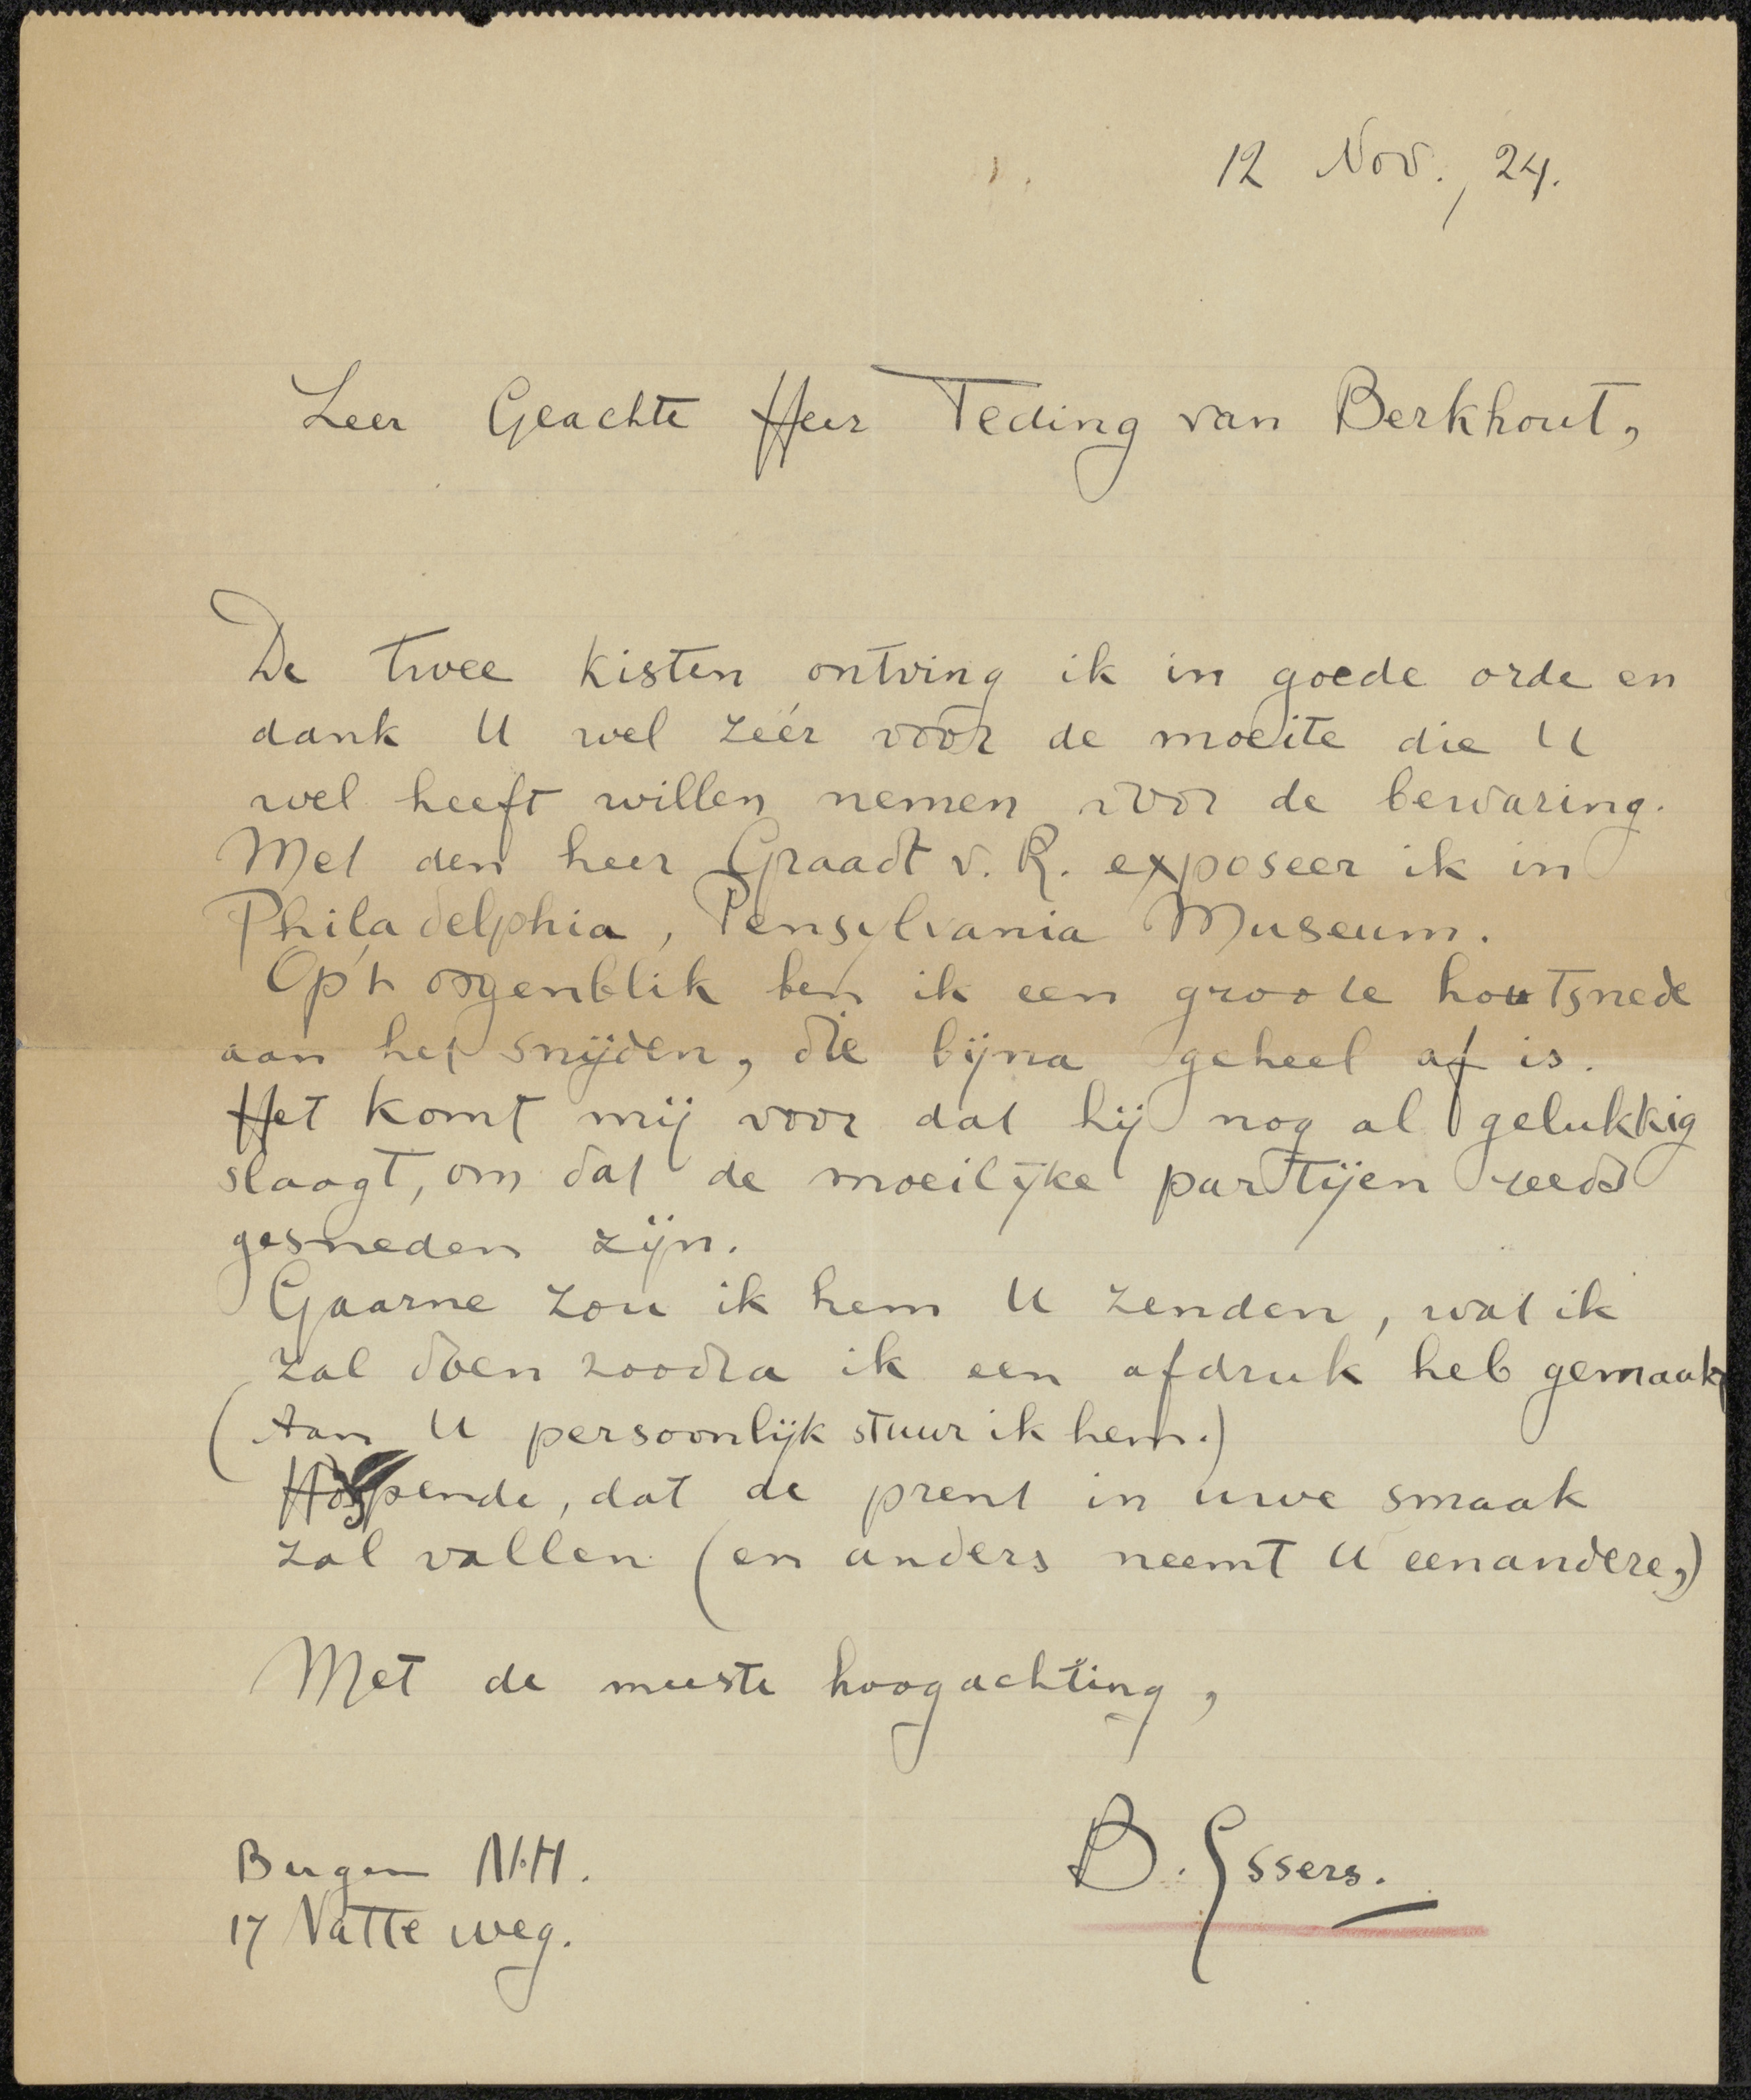 12 Nov., 24.
Zeer Geachte Heer Teding van Berkhout,
De twee kisten ontving ik in goede orde en
dank U wel zéér voor de moeite die U
wel heeft willen nemen voor de bewaring.
Met den heer Graadt v. R. exposeer ik in
Philadelphia, Pensylvania Museum.
Op'n oogenblik ben ik een groote houtsnede
aan het snijden, die bijna geheel af is.
Het komt mij voor dat hij nog al gelukkig
slaagt, om dat de moeilijke partijen reeds
gesneden zijn.
Gaarne zou ik hem U zenden, wat ik
zal doen zoodra ik een afdruk heb gemaakt
(Aan U persoonlijk stuur ik hem.)
Hopende, dat de prent in uwe smaak
zal vallen (en anders neemt U een andere,)
Met de meeste hoogachting,
B. Essers.
Bergen N.H.
17 Natte weg.